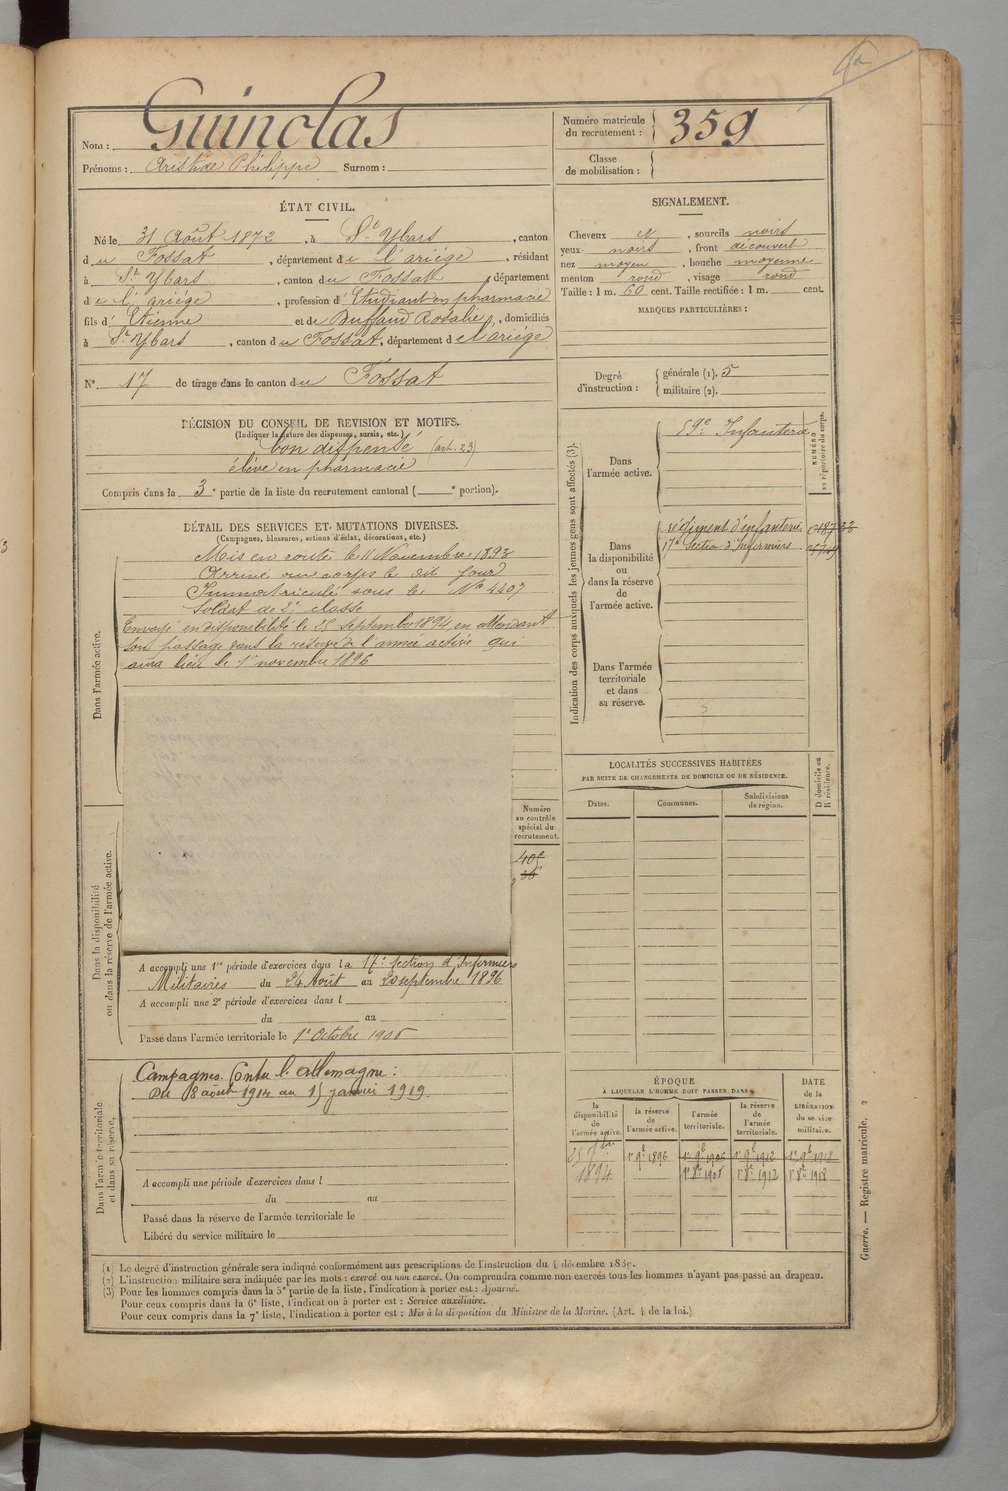 Guinclas
Nom :
Prénoms : Aristide Philippe Surnom :
Numéro matricule
du recrutement : 359
Classe
de mobilisation :
ÉTAT CIVIL.
Né le 31 Août 1872, à St Ybars, canton
du Fossat, département de l'ariège, résidant
à St Ybars, canton du Fossat, département
de l'ariège, profession d'Etudiant en pharmacie
fils d'Etienne et de Buffaud Rosalie, domiciliés
à St Ybars, canton du Fossat, département de l'ariège
N° 17 de tirage dans le canton du Fossat
SIGNALEMENT.
Cheveux et, sourcils noirs
yeux noirs, front découvert
nez moyen, bouche moyenne
menton rond, visage rond
Taille : 1 m. 60 cent. Taille rectifiée : 1 m. cent.
MARQUES PARTICULIÈRES :
Degré
d'instruction :
générale (1). 5
militaire (2).
DÉCISION DU CONSEIL DE REVISION ET MOTIFS.
(Indiquer la nature des dispenses, sursis, etc.)
bon dispensé (art. 23)
élève en pharmacie
Compris dans la 3e partie de la liste du recrutement cantonal ( e portion).
DÉTAIL DES SERVICES ET MUTATIONS DIVERSES.
(Campagnes, blessures, actions d'éclat, décorations, etc.)
Dans l'armée active.
Mis en route le 11 Novembre 1893
Arrivé au corps le dit jour
Immatriculé sous le No 4407
Soldat de 2e classe
Envoyé en disponibilité le 25 septembre 1894, en attendant
son passage dans la réserve de l'armée active qui
aura lieu le 1er novembre 1896
Indication des corps auxquels les jeunes gens sont affectés (3).
Dans
l'armée active.
59e Infanterie
NUMÉRO
au répertoire du corps.
Dans
la disponibilité
ou
dans la réserve
de
l'armée active.
régiment d'infanterie
17e Section d'Infirmiers
Dans l'armée
territoriale
et dans
sa réserve.
LOCALITÉS SUCCESSIVES HABITÉES
PAR SUITE DE CHANGEMENTS DE DOMICILE OU DE RÉSIDENCE.
Dates.
Communes.
Subdivisions
de région.
D domicile ou
R résidence.
Dans la disponibilité
ou dans la réserve de l'armée active.
Numéro
au contrôle
spécial du
recrutement.
A accompli une 1re période d'exercices dans la 17e Section d'Infirmiers
Militaires du 24 Août au 20 septembre 1896
A accompli une 2e période d'exercices dans l
du au
Passé dans l'armée territoriale le 1er Octobre 1906
Dans l'armée territoriale
et dans sa réserve.
Campagnes. Contre l'Allemagne :
Du 8 août 1914 au 15 janvier 1919.
A accompli une période d'exercices dans l
du au
Passé dans la réserve de l'armée territoriale le
Libéré du service militaire le
ÉPOQUE
À LAQUELLE L'HOMME DOIT PASSER DANS
la
disponibilité
de
l'armée active.
la réserve
de
l'armée active.
l'armée
territoriale.
la réserve
de
l'armée
territoriale.
DATE
de la
LIBÉRATION
du service
militaire.
25 7bre 1er 9e 1896 1er 9e 1906 1er 9e 1912 1er 9e 1918
1894 1er 8e 1906 1er 8e 1912 1er 8e 1918
(1) Le degré d'instruction générale sera indiqué conformément aux prescriptions de l'instruction du 4 décembre 1889.
(2) L'instruction militaire sera indiquée par les mots : exercé ou non exercé. On comprendra comme non exercés tous les hommes n'ayant pas passé au drapeau.
(3) Pour les hommes compris dans la 5e partie de la liste, l'indication à porter est : Ajourné.
Pour ceux compris dans la 6e liste, l'indication à porter est : Service auxiliaire.
Pour ceux compris dans la 7e liste, l'indication à porter est : Mis à la disposition du Ministre de la Marine. (Art. 4 de la loi.)
Guerre. — Registre matricule. 2